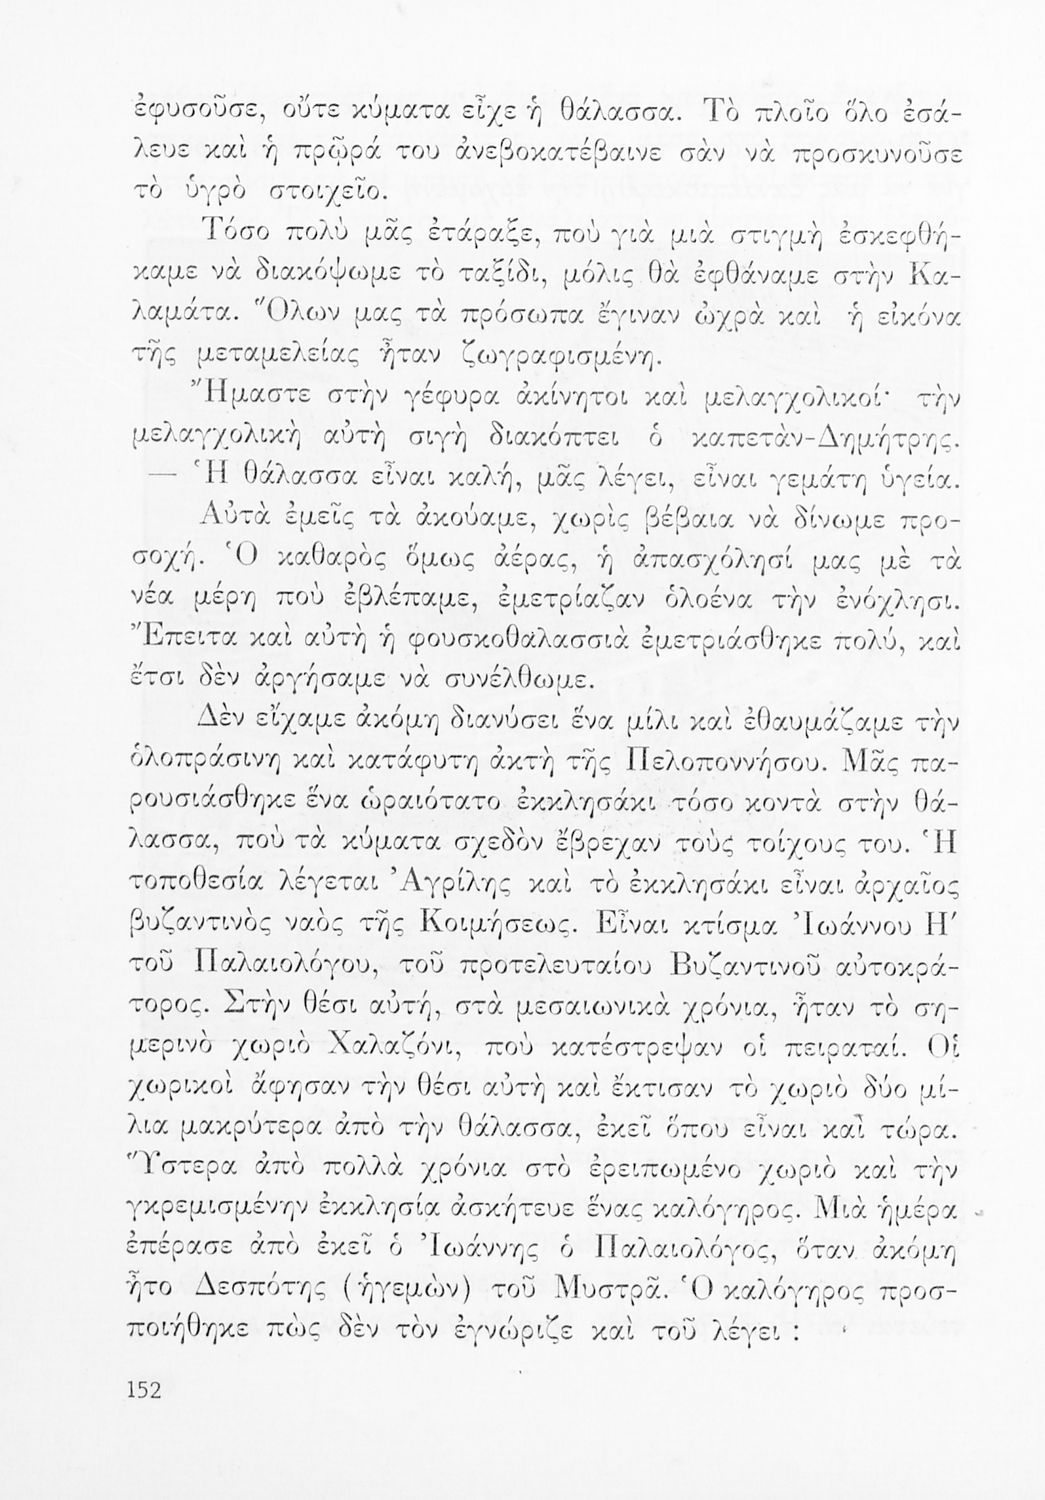 ἐφυσοῦσε, οὔτε κύματα εἶχε ἡ θάλασσα. Τὸ πλοῖο ὅλο ἐσά-
λευε καὶ ἡ πρῷρά του ἀνεβοκατέβαινε σὰν νὰ προσκυνοῦσε
τὸ ὑγρὸ στοιχεῖο.
Τόσο πολὺ μᾶς ἐτάραξε, ποὺ γιὰ μιὰ στιγμὴ ἐσκεφθή-
καμε νὰ διακόψωμε τὸ ταξίδι, μόλις θὰ ἐφθάναμε στὴν Κα-
λαμάτα. Ὅλων μας τὰ πρόσωπα ἔγιναν ὠχρὰ καὶ ἡ εἰκόνα
τῆς μεταμελείας ἦταν ζωγραφισμένη.
Ἤμαστε στὴν γέφυρα ἀκίνητοι καὶ μελαγχολικοί· τὴν
μελαγχολικὴ αὐτὴ σιγὴ διακόπτει ὁ καπετὰν-Δημήτρης.
— Ἡ θάλασσα εἶναι καλή, μᾶς λέγει, εἶναι γεμάτη ὑγεία.
Αὐτὰ ἐμεῖς τὰ ἀκούαμε, χωρὶς βέβαια νὰ δίνωμε προ-
σοχή. Ὁ καθαρὸς ὅμως ἀέρας, ἡ ἀπασχόλησί μας μὲ τὰ
νέα μέρη ποὺ ἐβλέπαμε, ἐμετρίαζαν ὁλοένα τὴν ἐνόχλησι.
Ἔπειτα καὶ αὐτὴ ἡ φουσκοθαλασσιὰ ἐμετριάσθηκε πολύ, καὶ
ἔτσι δὲν ἀργήσαμε νὰ συνέλθωμε.
Δὲν εἴχαμε ἀκόμη διανύσει ἕνα μίλι καὶ ἐθαυμάζαμε τὴν
ὁλοπράσινη καὶ κατάφυτη ἀκτὴ τῆς Πελοποννήσου. Μᾶς πα-
ρουσιάσθηκε ἕνα ὡραιότατο ἐκκλησάκι τόσο κοντὰ στὴν θά-
λασσα, ποὺ τὰ κύματα σχεδὸν ἔβρεχαν τοὺς τοίχους του. Ἡ
τοποθεσία λέγεται Ἀγρίλης καὶ τὸ ἐκκλησάκι εἶναι ἀρχαῖος
βυζαντινὸς ναὸς τῆς Κοιμήσεως. Εἶναι κτίσμα Ἰωάννου Η΄
τοῦ Παλαιολόγου, τοῦ προτελευταίου Βυζαντινοῦ αὐτοκρά-
τορος. Στὴν θέσι αὐτή, στὰ μεσαιωνικὰ χρόνια, ἦταν τὸ ση-
μερινὸ χωριὸ Χαλαζόνι, ποὺ κατέστρεψαν οἱ πειραταί. Οἱ
χωρικοὶ ἄφησαν τὴν θέσι αὐτὴ καὶ ἔκτισαν τὸ χωριὸ δύο μί-
λια μακρύτερα ἀπὸ τὴν θάλασσα, ἐκεῖ ὅπου εἶναι καὶ τώρα.
Ὕστερα ἀπὸ πολλὰ χρόνια στὸ ἐρειπωμένο χωριὸ καὶ τὴν
γκρεμισμένην ἐκκλησία ἀσκήτευε ἕνας καλόγηρος. Μιὰ ἡμέρα
ἐπέρασε ἀπὸ ἐκεῖ ὁ Ἰωάννης ὁ Παλαιολόγος, ὅταν ἀκόμη
ἦτο Δεσπότης (ἡγεμὼν) τοῦ Μυστρᾶ. Ὁ καλόγηρος προσ-
ποιήθηκε πὼς δὲν τὸν ἐγνώριζε καὶ τοῦ λέγει :
152